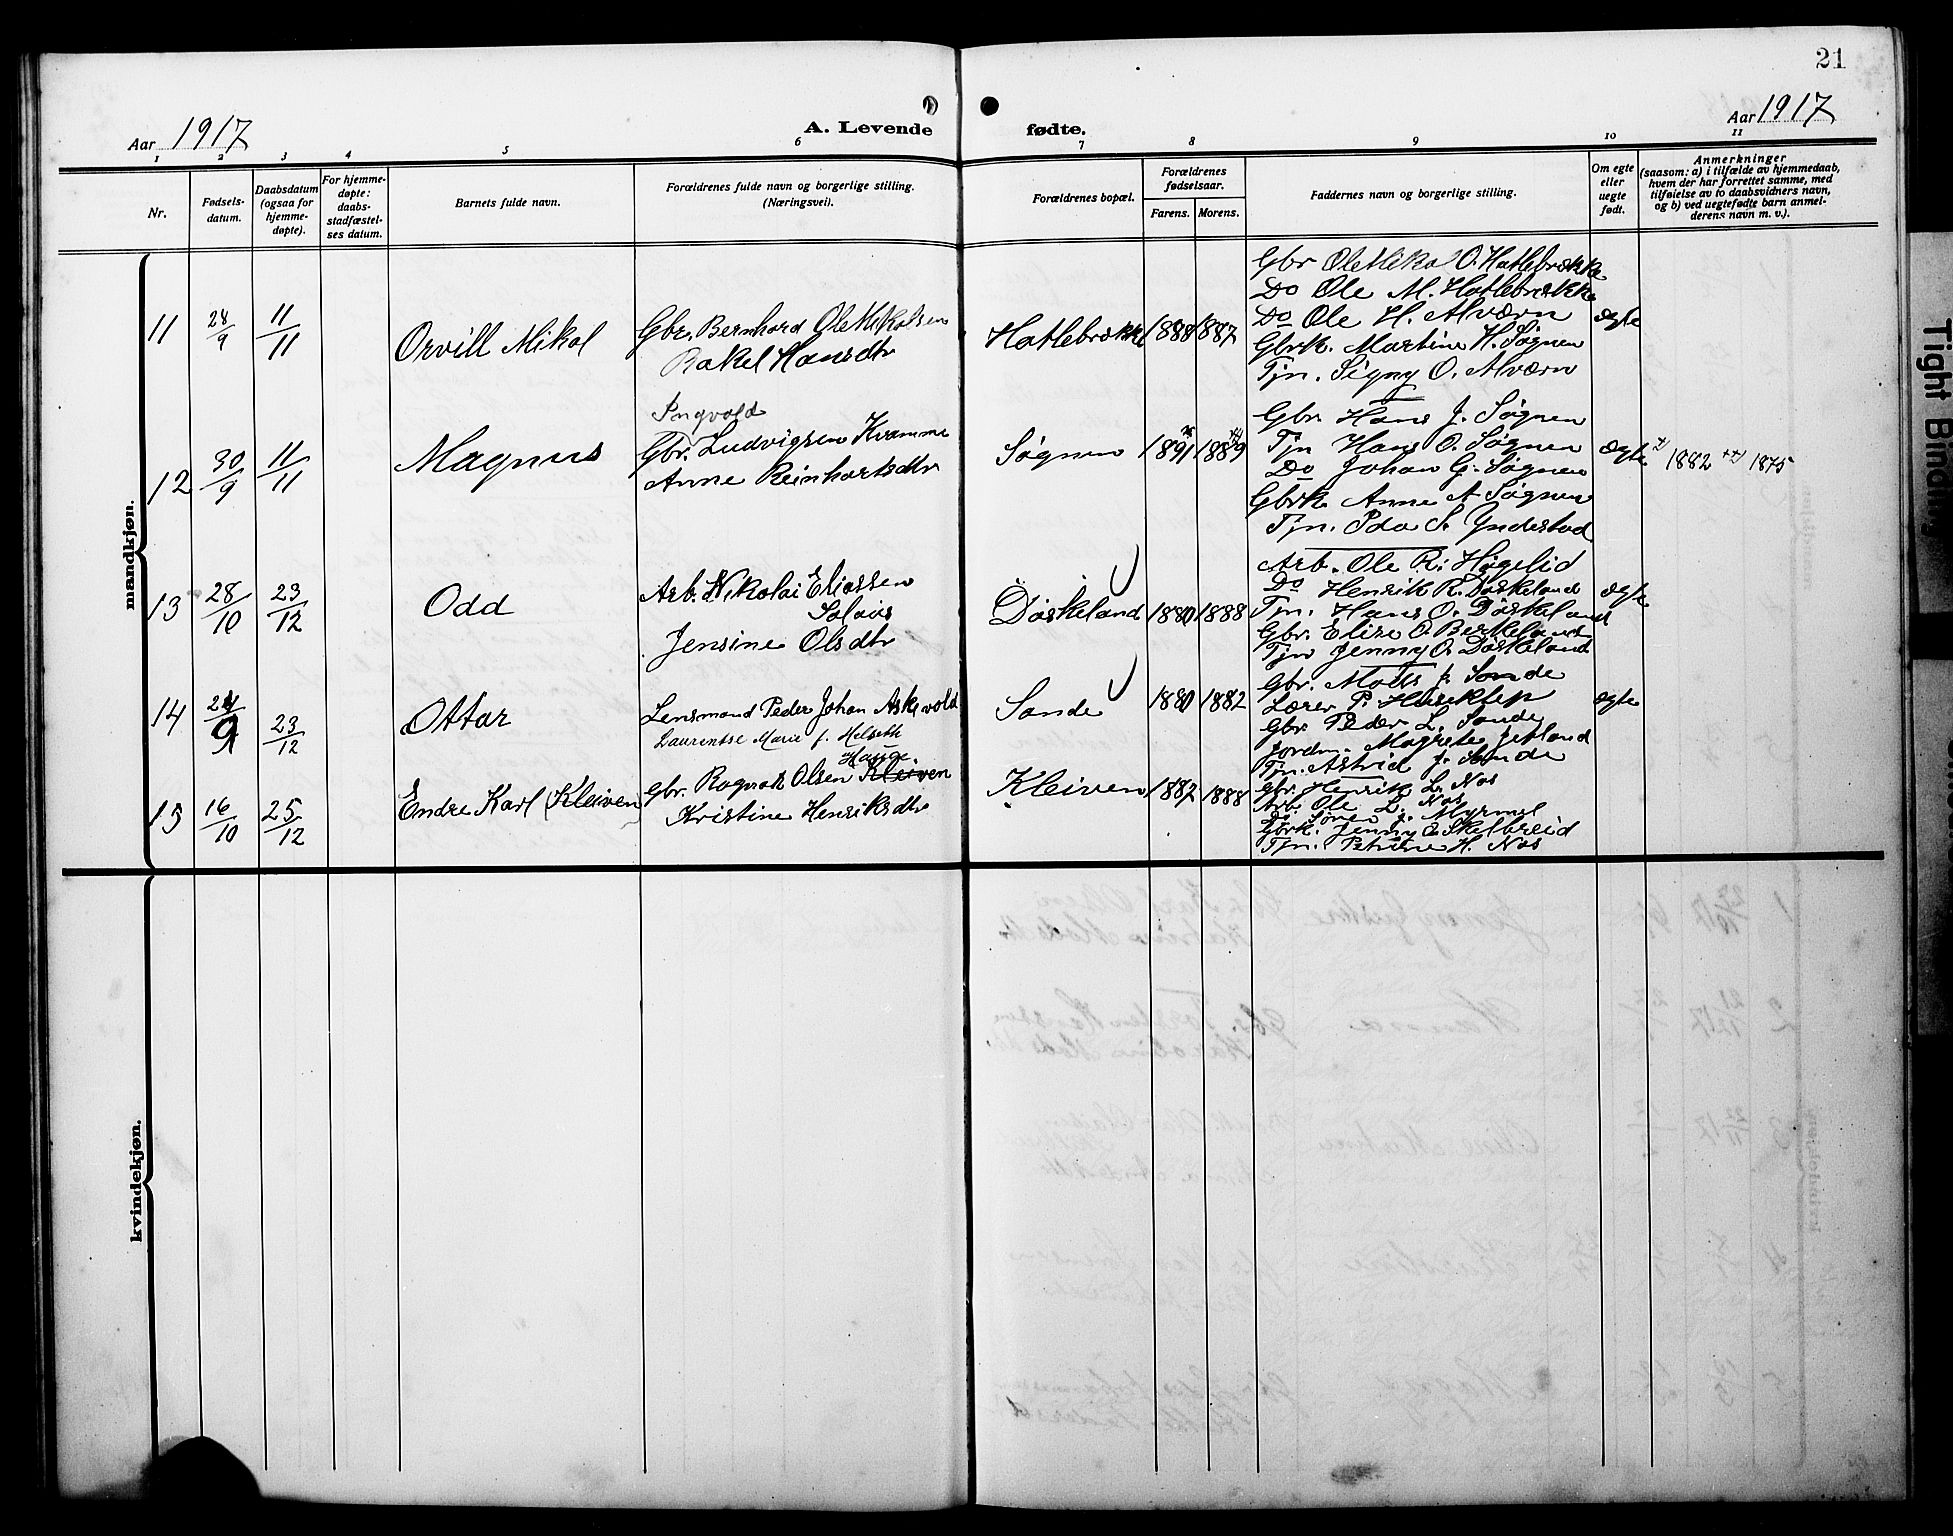 21
Aar 1917
A. Levende
fødte.
Aar 1917
1 2 3 4 5 6 7 8 9 10 11
Nr.
Fødsels-
datum.
Daabsdatum
(ogsaa for
hjemme-
døpte).
For hjemme-
døpte:
daabs-
stadfæstel-
ses datum.
Barnets fulde navn.
Forældrenes fulde navn og borgerlige stilling.
(Næringsvei).
Forældrenes bopæl.
Forældrenes
fødselsaar.
Farens. Morens.
Faddernes navn og borgerlige stilling.
Om egte
eller
uegte
født.
Anmerkninger
(saasom: a) i tilfælde av hjemmedaab,
hvem der har forrettet samme, med
tilføielse av to daabsvidners navn,
og b) ved uegtefødte barn anmel-
derens navn m. v.).
mandkjøn.
11 28/9 11/11 Orvill Mikal
Gbr. Bernhard OleMikalsen
Rakel Hansdtr
Hatlebrække 1888 1887
Gbr OleMikal O. Hatlebrække
Do Ole M. Hatlebrække
Do Ole H. Alværn
Gbrk. Martine H. Søgnen
Tjn. Signy O. Alværn
ægte
12 30/9 11/11 Magnus
Ingvald
Gbr. Ludvigsen Kvamme
Anne Reinhartsdtr
Søgnen 1891 1889
Gbr. Hans J. Søgnen
Tjn Hans O. Søgnen
Do Johan G. Søgnen
Gbrk. Anne A Søgnen
Tjn. Ida S. Yndestad
ægte
+) 1882 ++) 1875
13 28/10 23/12 Odd
Arb. Nikolai Eliassen
Solaas
Jensine Olsdtr
Døskeland 1880 1888
Arb. Ole R. Høgelid
Do Henrik R. Døskeland
Tjn. Hans O. Døskeland
Gbr. Elise O. Berkeland
Tjn Jenny O. Døskeland
ægte
14 24/9 23/12 Ottar
Lensmand Peder Johan Askevold
Laurentse Marie f. Helseth
Sande 1880 1882
Gbr. Mons J. Sande
Lærer P.
Gbr. Peder L. Sande
Jordm. Magrete Jetland
Tjn. Astrid J. Sande
ægte
15 16/10 25/12 Endre Karl (Kleiven)
Hauge
Gbr. Ragnvald Olsen Kleiven
Kristine Henriksdtr
Kleiven 1882 1888
Gbr. Henrik L. Nos
Arb. Ole L. Nos
Do Søren J. Myrmel
Gbrk. Jenny E Skelbreid
Tjn. Petrine H. Nos
kvindekjøn.
Tight Binding